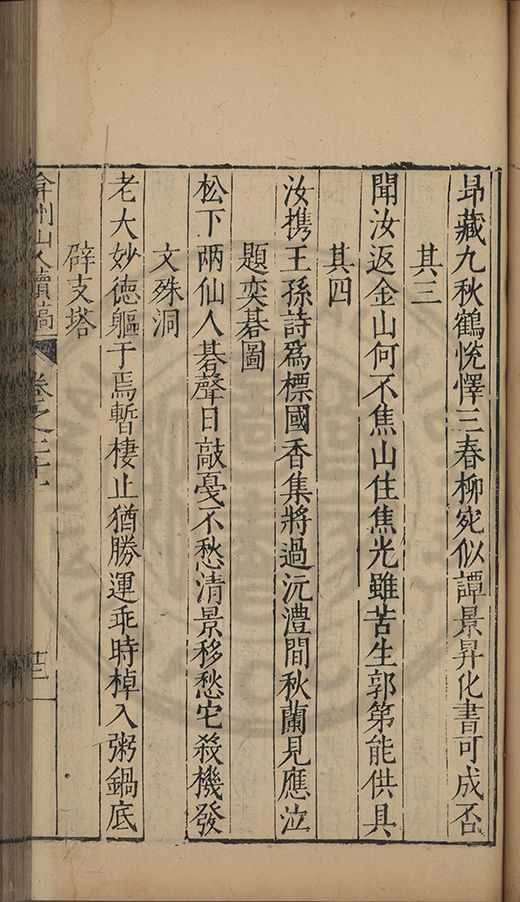 昻藏九秋鶴恱懌三春柳宛似譚景昇化書可成否
其三
聞汝返金山何不焦山住焦光雖苦生郭第能供具
其四
汝携王孫詩爲標國香集將過沅澧間秋蘭見應泣
題奕碁圖
松下两仙人碁聲日敲戞不愁清景移愁它殺機發
文殊洞
老大妙徳軀于焉暫棲止猶勝運乖時棹入粥鍋底
辟支塔
弇州山人續稿 卷之二十